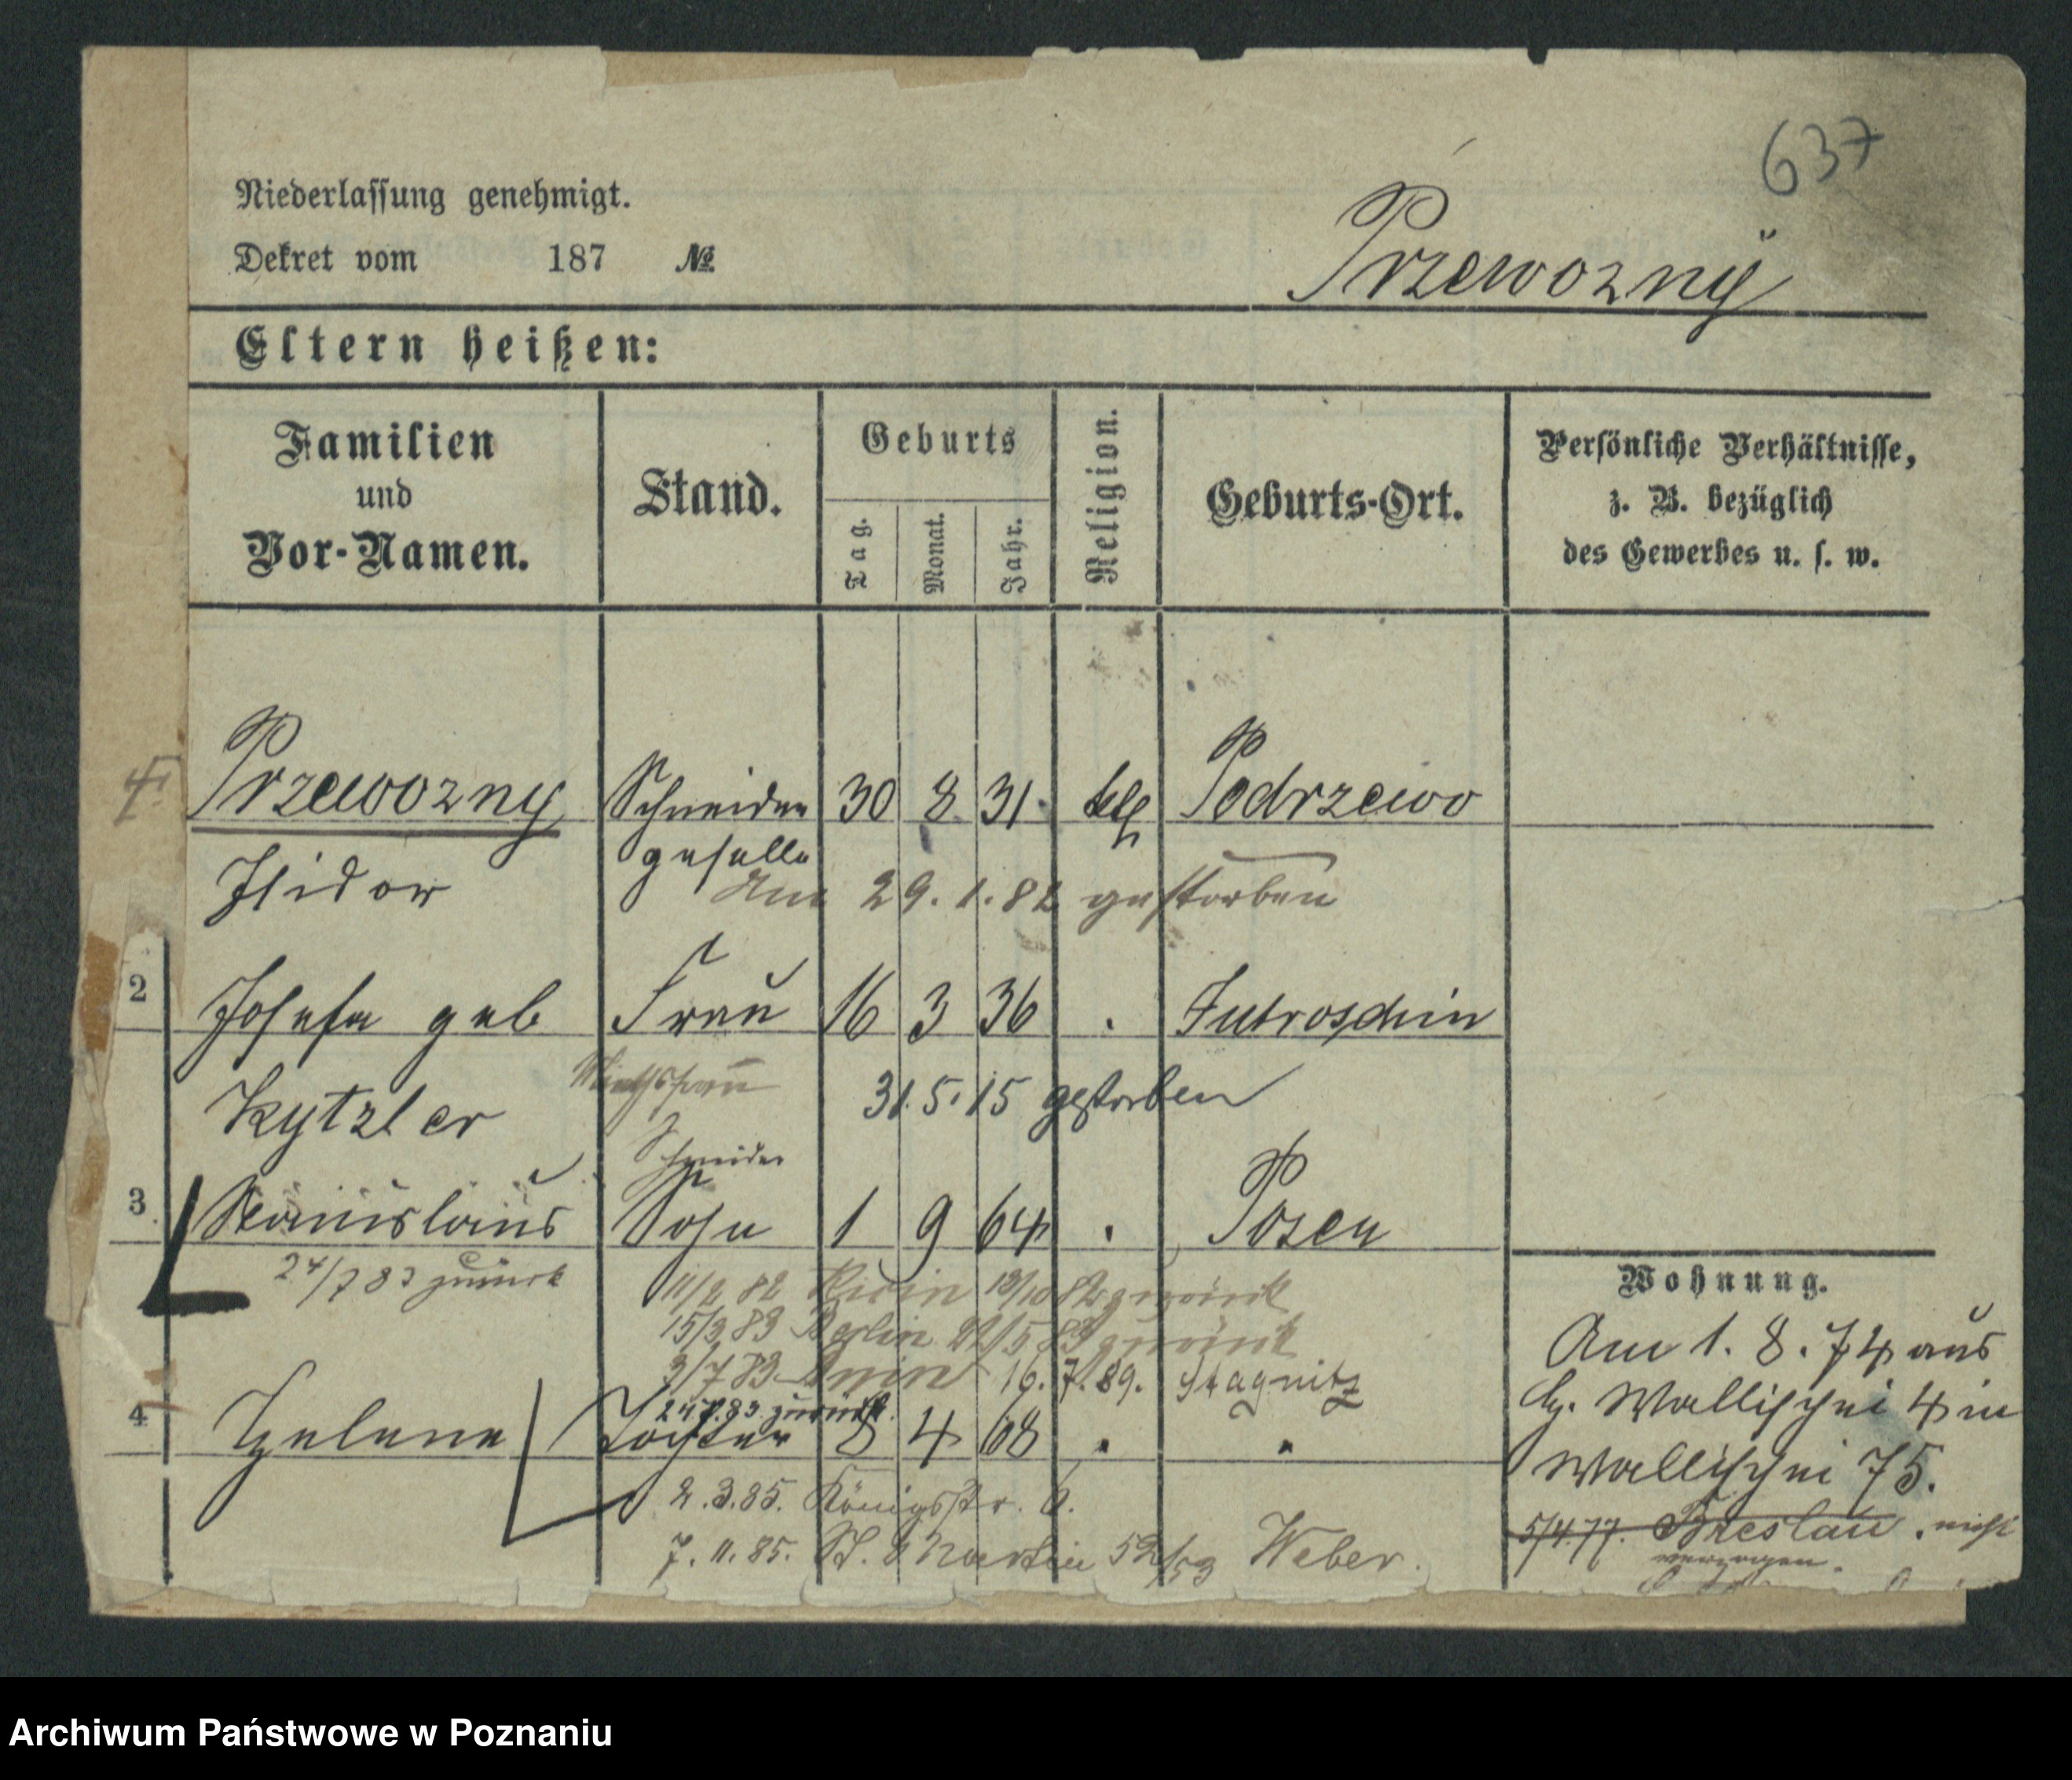 637
Niederlassung genehmigt.
Dekret vom 187 №
Przewozny
Eltern heißen:
Familien und Vor-Namen.
Stand.
Geburts
Tag.
Monat.
Jahr.
Religion.
Geburts-Ort.
Persönliche Verhältnisse, z. B. bezüglich des Gewerbes u. s. w.
Przewozny Schneider 30 8 31 kth Podrzewo
Isidor geselle
Am 29. 1. 82 gestorben
2 Josefa geb Frau 16 3 36 . Jutroschin
Kytzler 31. 5. 15 gestorben
Schneider
3 Stanislaus Sohn 1 9 64 . Posen
24/7 83 zurück 11/2 82 zurück
15/3 83 Berlin zurück
3/7 83 16. 7. 89.
24 7. 83 zurück.
4 Helene Tochter 8 4 68 " "
2. 3. 85. Königsstr. 6.
7. 11. 85. St. Martin 52/53 Weber.
Wohnung.
Am 1. 8. 74 aus
Wallischei 4 in
Wallischei 75.
5/4. 77. Breslau. nicht
verzogen.
Archiwum Państwowe w Poznaniu